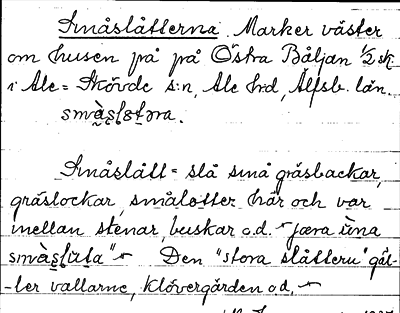 Småslåtterna. Marker väster
om husen på på Östra Båljan 1/2 sk
i Ale = Skövde s:n, Ale hrd, Älfsb. län.
små̀slɛtəra.
Småslått = slå små gräsbackar,
gräslockar, smålotter här och var
mellan stenar, buskar o.d.
Den "stora slåttern" gäl-
-ler vallarne, klövergården o.d.